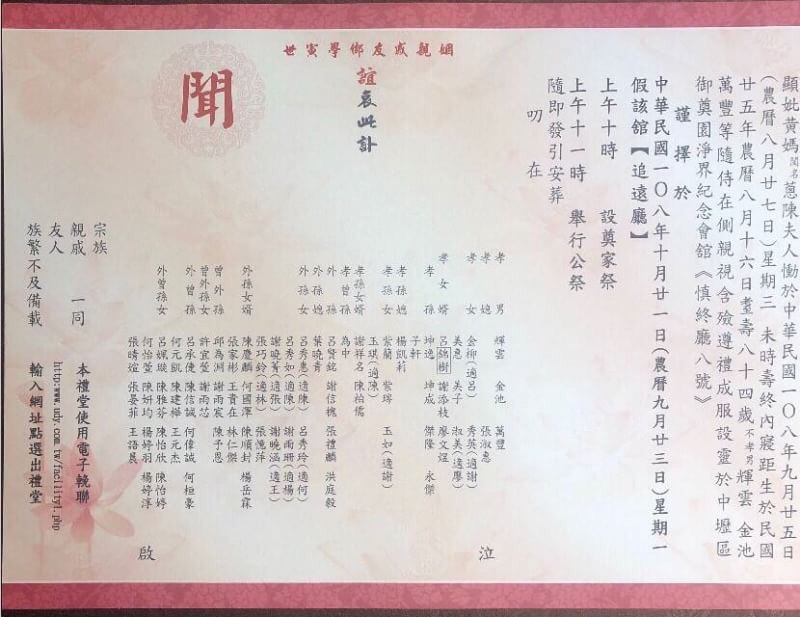 顯妣黃媽閨名蔥陳夫人慟於中華民國一〇八年九月廿五日
(農曆八月廿七日)星期三 未時壽終內寢距生於民國
廿五年農曆八月十六日耋壽八十四歲不孝男輝雲 金池
萬豐等隨侍在側親視含殮遵禮成服設靈於中壢區
御奠園淨界紀念會館《慎終廳八號》
謹擇於
中華民國一〇八年十月廿一日(農曆九月廿三日)星期一
假該館【追遠廳】
上午十時 設奠家祭
上午十一時 舉行公祭
隨即發引安葬
叨在
姻親戚友鄉學寅世
誼哀此訃
聞
孝男 輝雲 金池 萬豐
孝媳 張淑惠
孝女 金柳(適呂) 秀英(適謝)
美惠 美子 淑美(適廖)
孝女婿 呂錦樹 謝添枝 廖文煌
孝孫 坤逸 坤成 傑隆 永傑
子軒
孝孫媳 楊凱莉
孝孫女 紫蘭 紫璿 玉如(適謝)
玉琪(適陳)
孝孫女婿 謝祥名 陳柏儒
孝曾孫 為中
外孫 呂賢銘 謝信槐 張禮麟 洪庭毅
外孫媳 葉曉青
外孫女 呂秀惠(適陳) 呂秀玲(適何)
呂秀如(適陳) 謝雨珊(適楊)
謝曉菁(適張) 謝曉涵(適王)
張巧鈴(適林) 張憓萍
外孫女婿 陳慶麟 何國澤 陳順封 楊岳霖
張家彬 王貴在 林仁傑
外曾孫 邱為淵 謝雨宸 陳子恩
曾外孫女 許宜萱 謝雨芯
外曾孫 呂承倢 陳信誠 何偉誠 何桓豪
何元凱 陳建樺 王元杰
外曾孫女 呂姵璇 陳雅芬 陳怡欣 陳怡婷
何怡萱 陳妍均 楊婷羽 楊婷淳
張晴媗 張晏菲 王語晨
泣
啟
宗族
親戚 一同
友人
族繁不及備載
本禮堂使用電子輓聯
http:www.udy.com.tw/facility1.php
輸入網址點選出禮堂